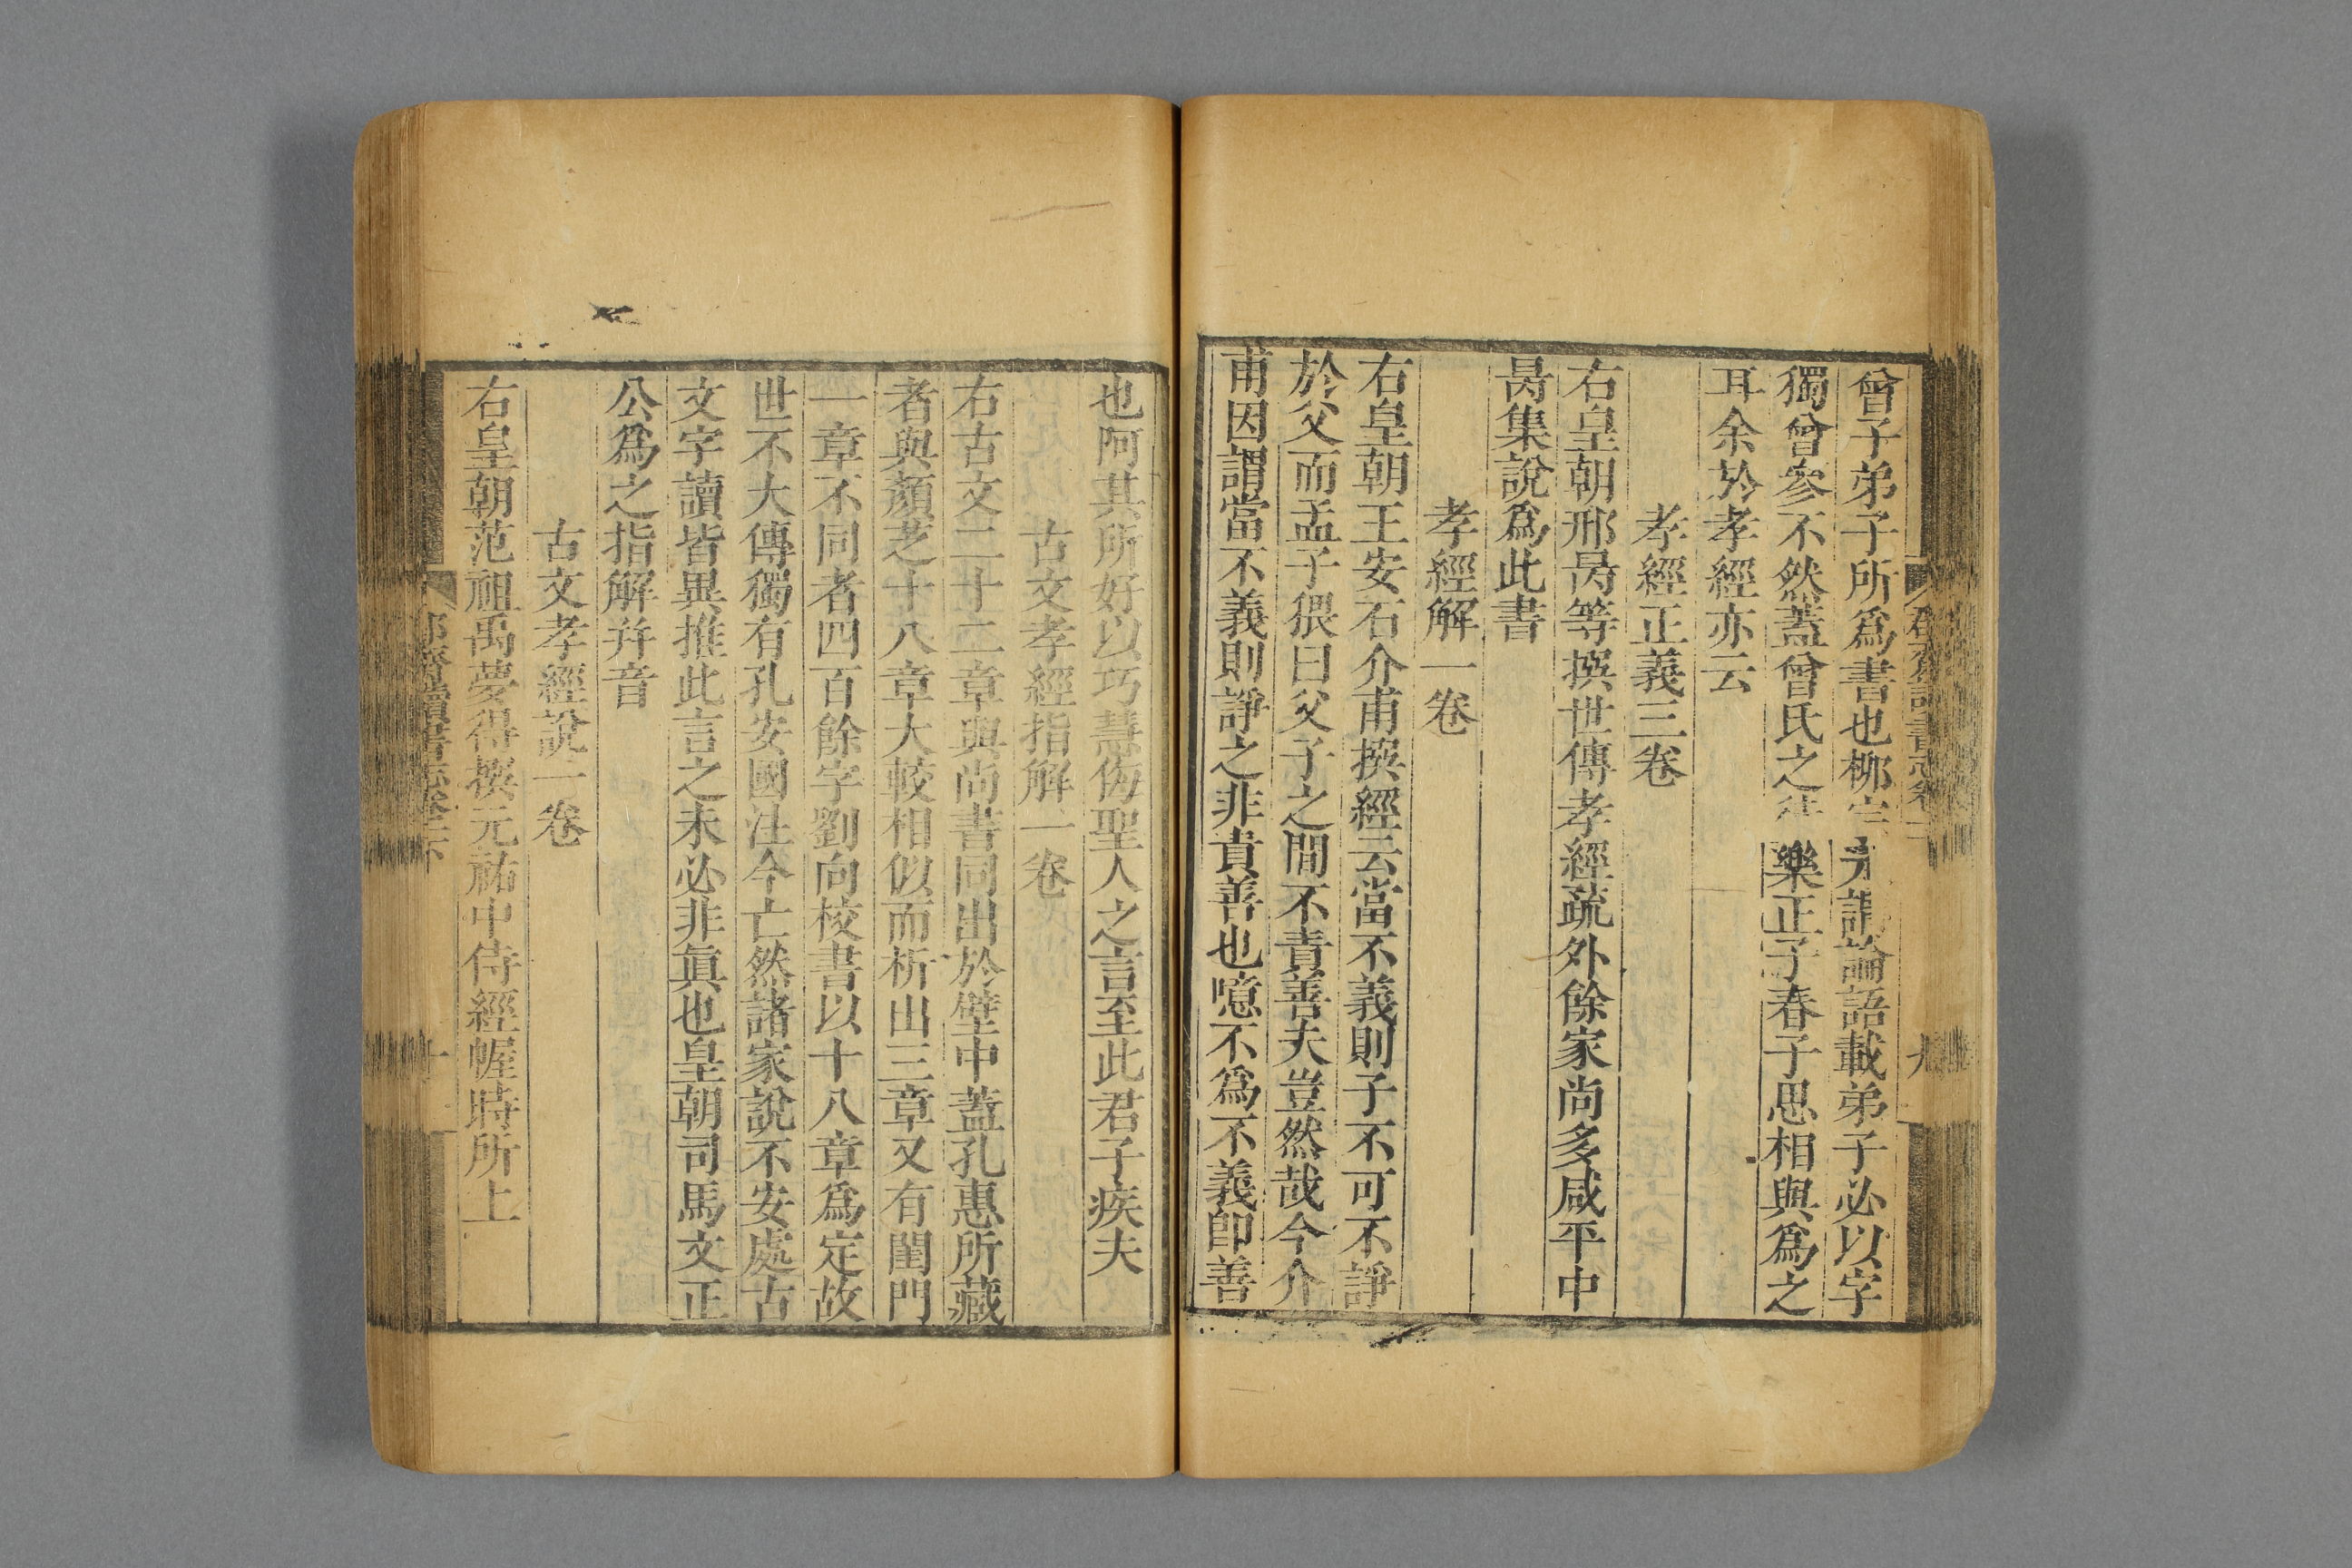 曾子弟子所爲書也柳宗元謂論語載弟子必以字
獨曾參不然蓋曾氏之徒樂正子春子思相與爲之
耳余於孝經亦云
孝經正義三卷
右皇朝邢昺等撰世傳孝經疏外餘家尚多咸平中
昺集說爲此書
孝經解一卷
右皇朝王安石介甫撰經云當不義則子不可不諍
於父而孟子猥曰父子之間不責善夫豈然哉今介
甫因謂當不義則諍之非責善也噫不爲不義卽善
也阿其所好以巧慧侮聖人之言至此君子疾夫
古文孝經指解一卷
右古文二十二章與尚書同出於壁中蓋孔惠所藏
者與顏芝十八章大較相似而析出三章又有閨門
一章不同者四百餘字劉向校書以十八章爲定故
世不大傳獨有孔安國注今亡然諸家說不安處古
文字讀皆異推此言之未必非眞也皇朝司馬文正
公爲之指解幷音
古文孝經說一卷
右皇朝范祖禹夢得撰元祐中侍經幄時所上